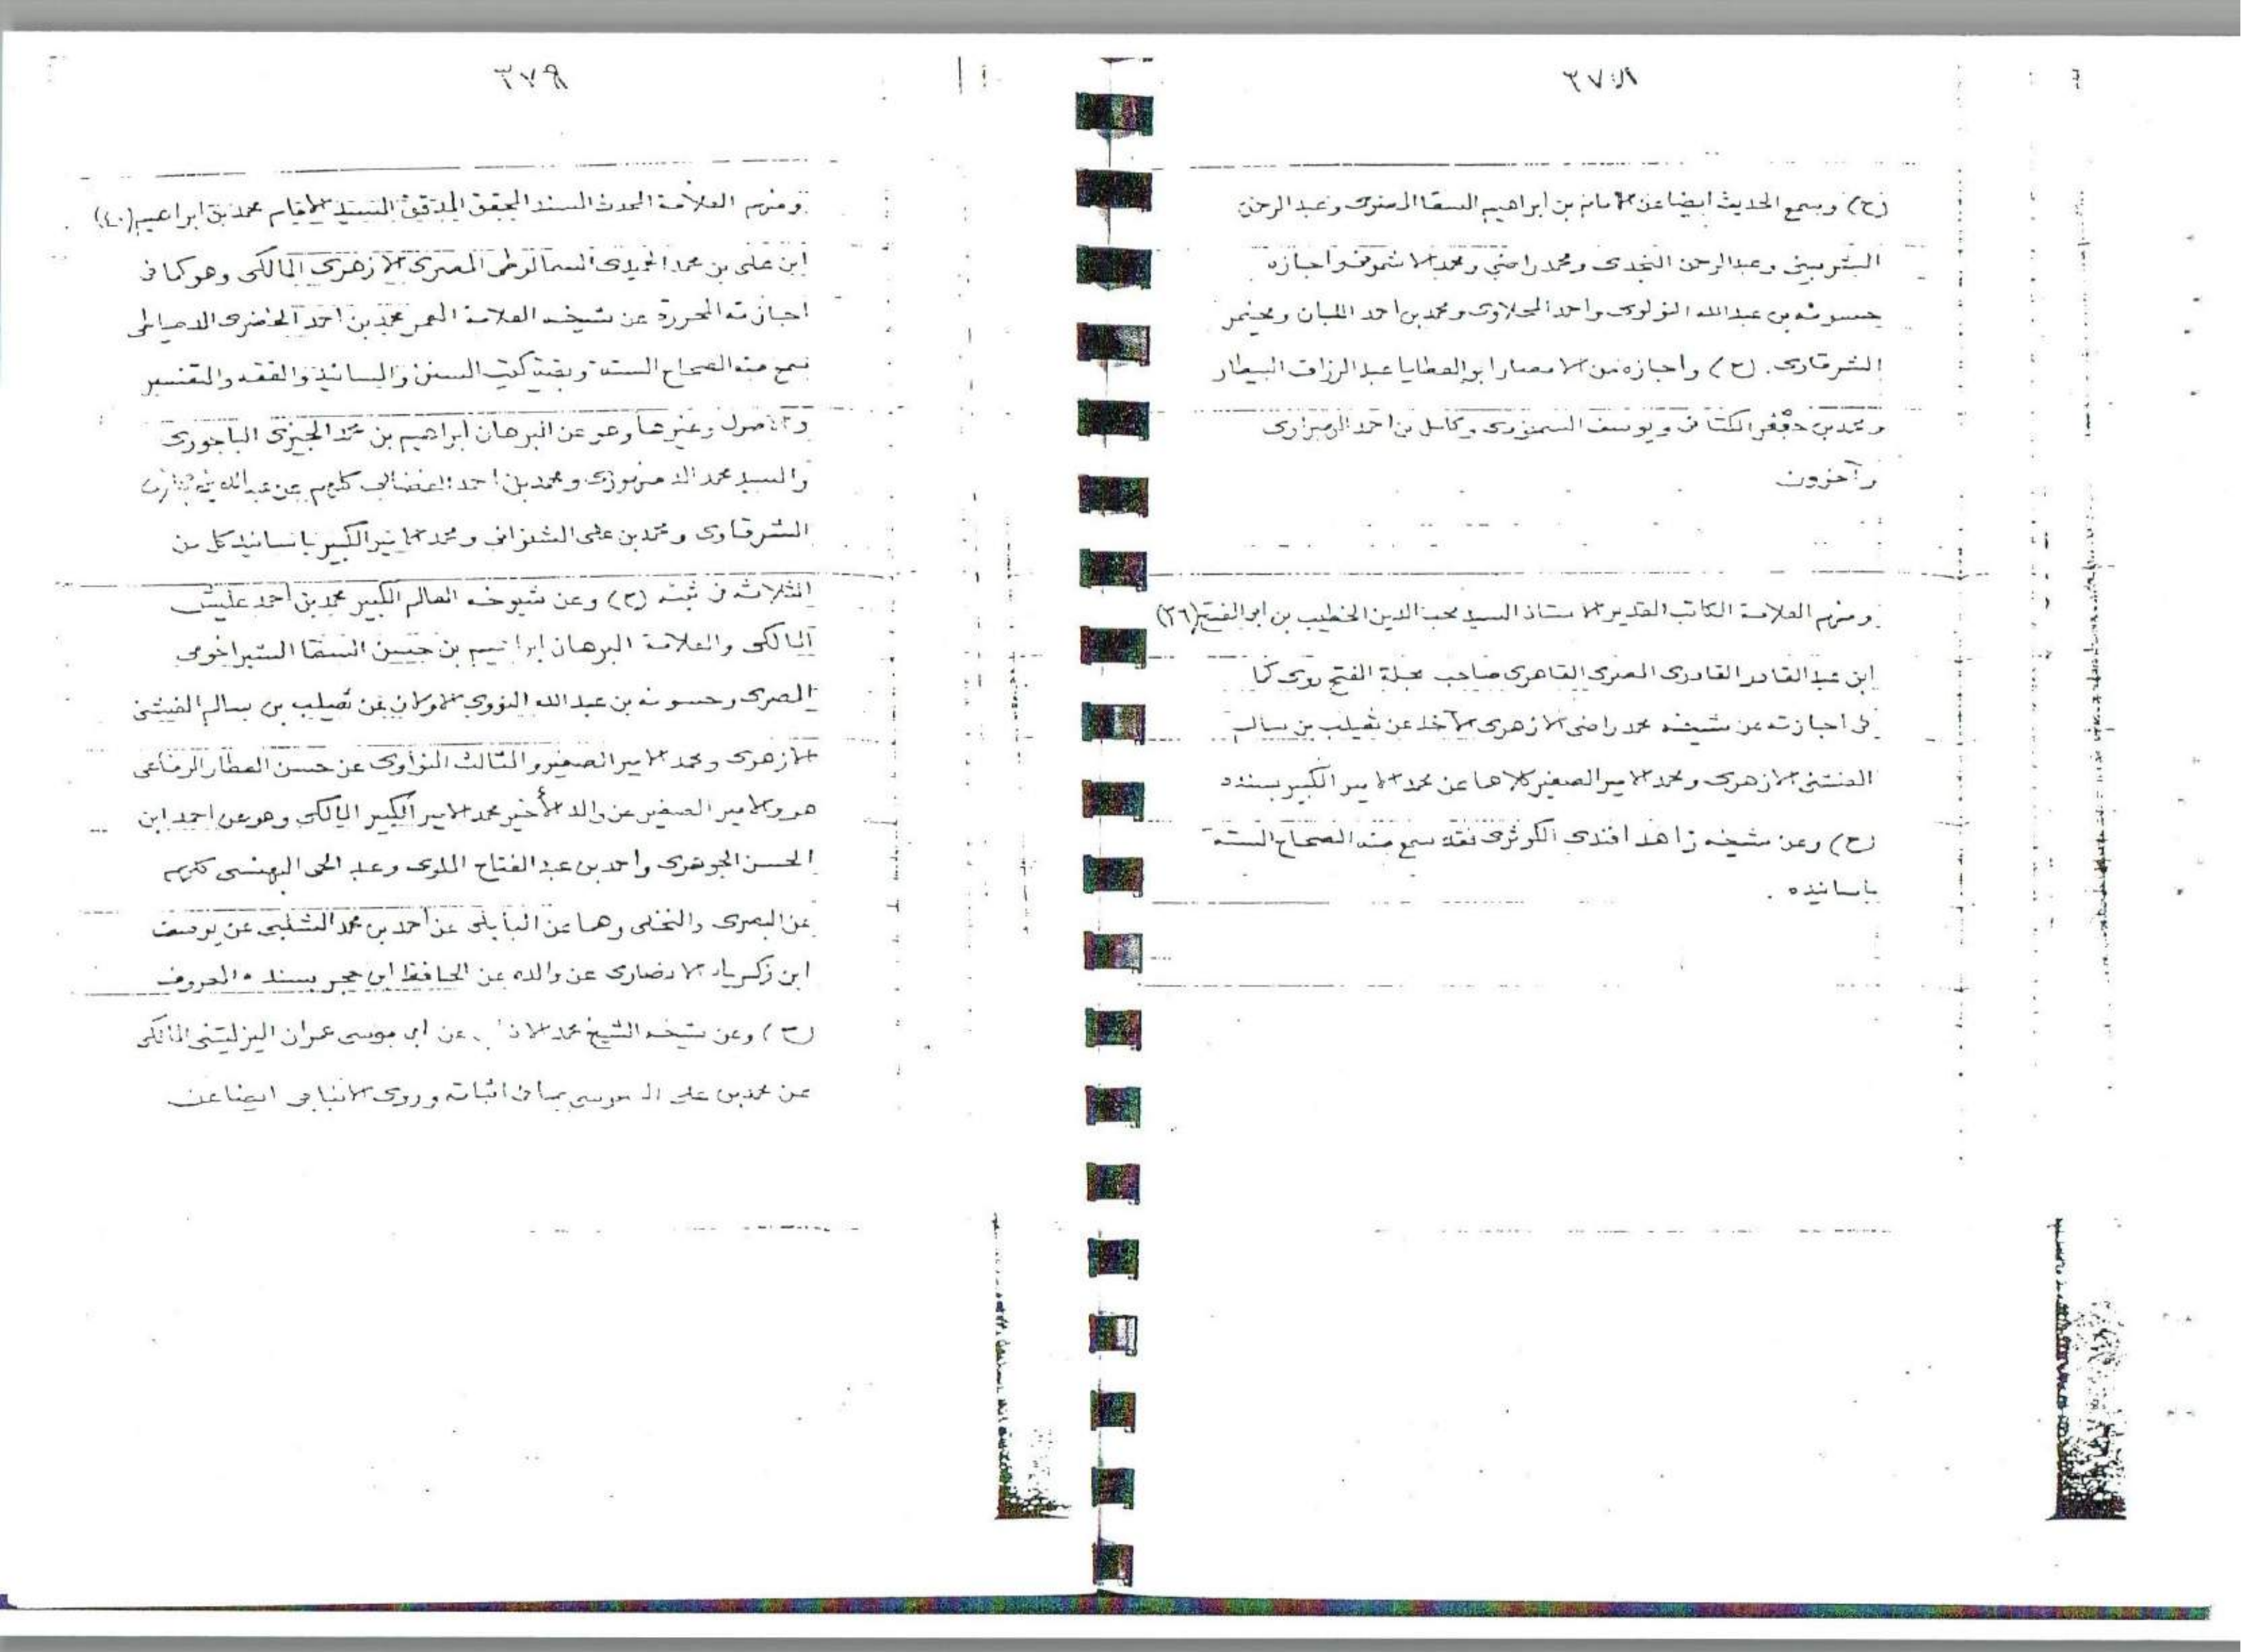 ٣٧٨
(ح) وسمع الحديث ايضا عن الامام بن ابراهيم السقا المصرى وعبد الرحمن
الشربينى وعبد الرحمن النجدى ومحمد راضي ومحمد الاشمونى واجازه
حسونه بن عبد الله النولوى واحمد المحلاوى ومحمد بن احمد اللبان
الشرقاوى . (ح) واجازه من الامصار ابو العطايا عبد الرزاق البيطار
ومحمد بن جعفر الكتانى ويوسف السمنودى وكامل بن احمد الهبراوى
وآخرون
ومنهم العلامة الكاتب القدير الاستاذ السيد محب الدين الخطيب بن ابو الفتح (٣٩)
ابن عبد القادر القادرى المصرى القاهرى صاحب مجلة الفتح روى كما
فى اجازته عن شيخه محمد راضى الازهرى الآخذ عن ثعيلب بن سالم
الفشنى الازهرى ومحمد الامير الصغير كلاهما عن محمد الامير الكبير بسنده
(ح) وعن شيخه زاهد افندى الكوثرى فقد سمع منه الصحاح الستة
باسانيده .
٣٧٩
ومنهم العلامة المحدث المسند المحقق المدقق السيد الامام محمد بن ابراهيم (٤٠)
ابن على بن محمد الحميدى السمالوطى المصرى الازهرى المالكى وهو كما فى
اجازته المحررة عن شيخه العلامة المعمر محمد بن احمد الخضرى الدمياطى
سمع منه الصحاح الستة وبقية كتب السنن والمسانيد والفقه والتفسير
والاصول وغيرها وهو عن البرهان ابراهيم بن محمد الجيزى الباجورى
والسيد محمد الدمنهورى ومحمد بن احمد الفضالى كلهم عن عبد الله بن حجازى
الشرقاوى ومحمد بن على الشنوانى ومحمد الامير الكبير باسانيد كل من
الثلاثة فى ثبته (ح) وعن شيوخه العالم الكبير محمد بن احمد عليش
المالكى والعلامة البرهان ابراهيم بن حسن السقا الشبراخومى
المصرى وحسونه بن عبد الله النووى الاولان عن ثعيلب بن سالم الفشنى
الازهرى ومحمد الامير الصغير والثالث النواوى عن حسن العطار الرفاعى
هو والامير الصغير عن والد الأخير محمد الامير الكبير المالكى وهو عن احمد ابن
الحسن الجوهرى واحمد بن عبد الفتاح الملوى وعبد الحى البهنسى كلهم
عن البصرى والنخلى وهما عن البابلى عن احمد بن محمد الشلبى عن يوسف
ابن زكريا الانصارى عن والده عن الحافظ ابن حجر بسنده المعروف
(ح) وعن شيخه الشيخ محمد عن ابى موسى عمران اليزليتنى المالكى
عن محمد بن على السنوسي بما فى اثباته وروى الانبابى ايضا عن